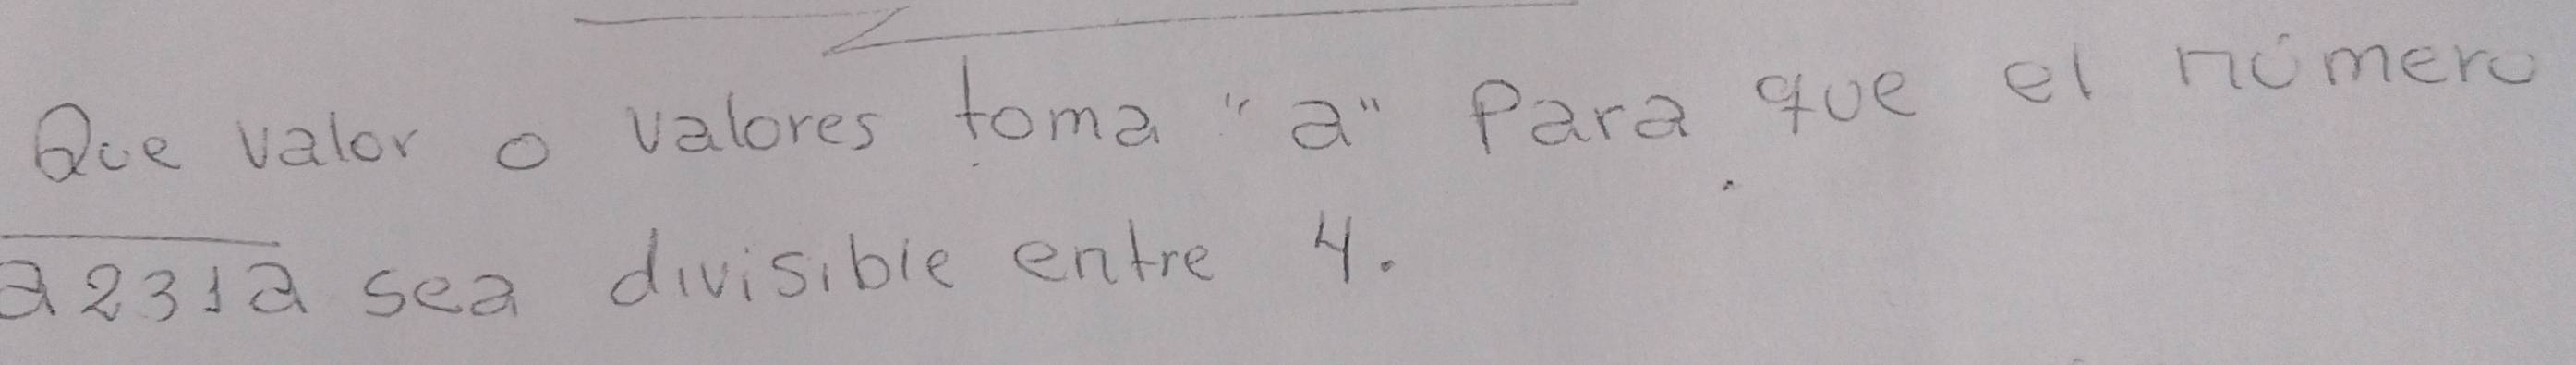 Que valor o valores toma "a" Para que el número
a231a sea divisible entre 4.